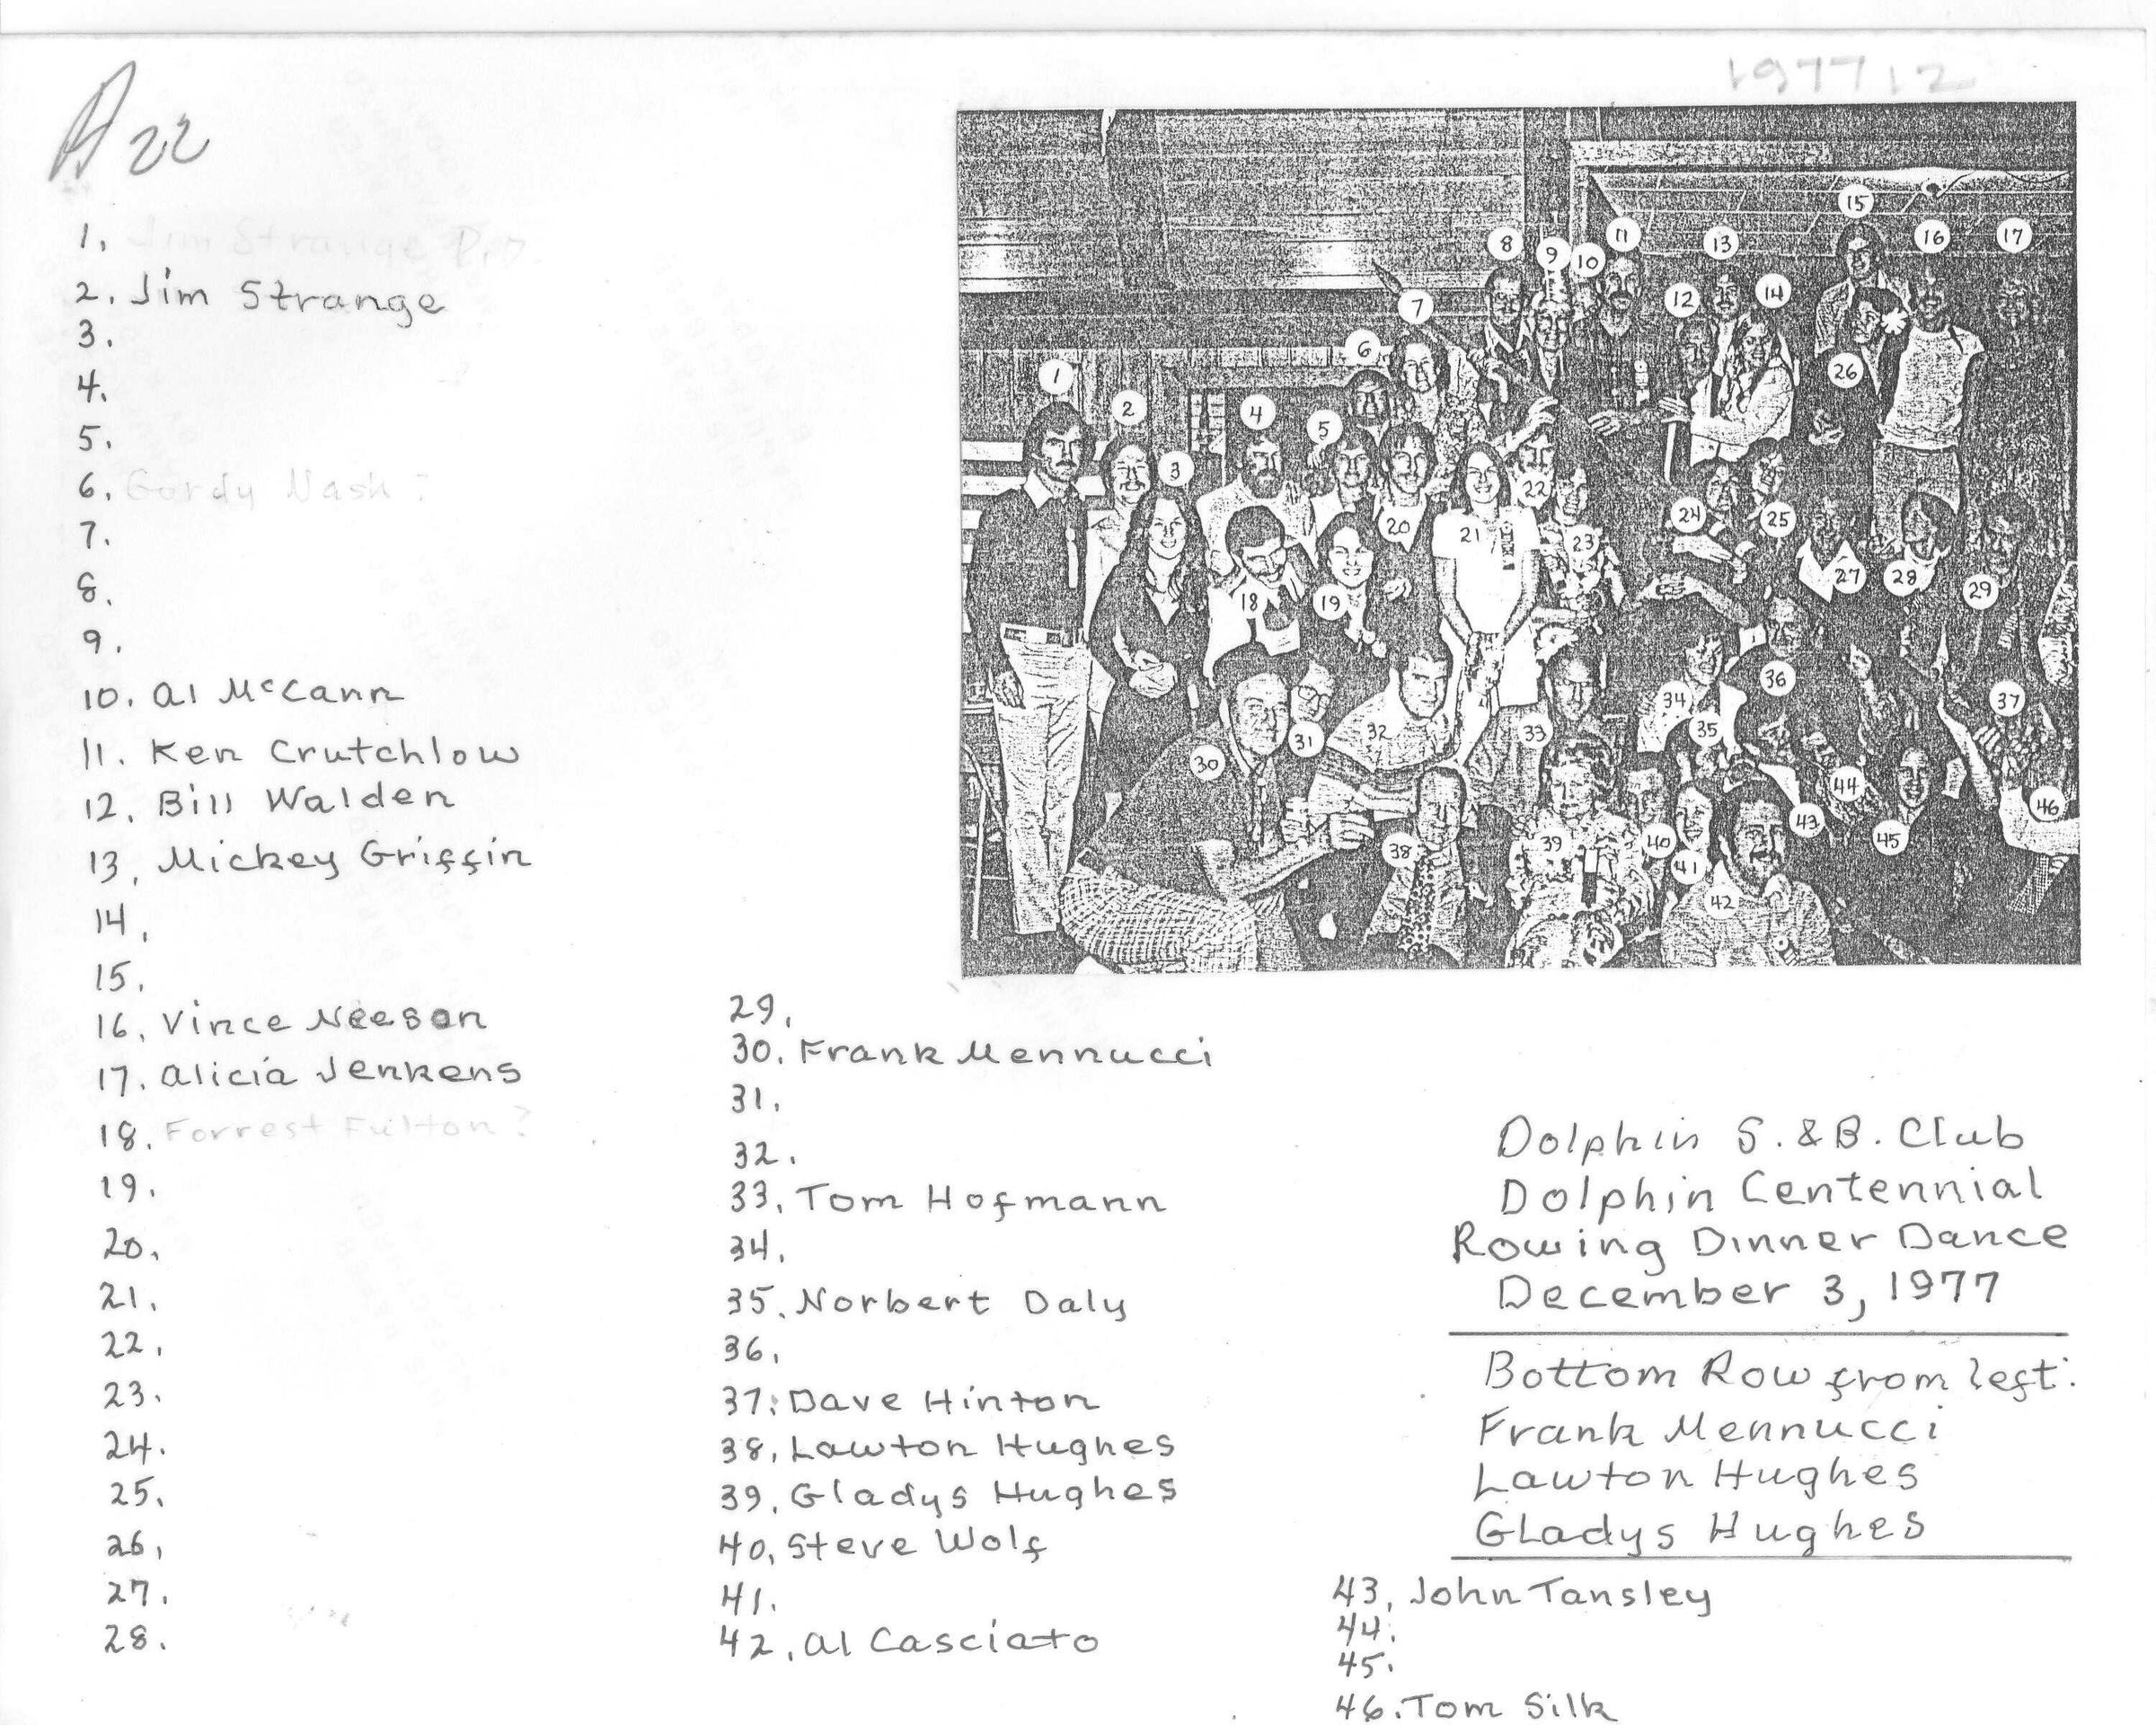 197712
A22
1. Jim Strange
2. Jim Strange
3.
4.
5.
6. Gordy Nash?
7.
8.
9.
10. Al McCann
11. Ken Crutchlow
12. Bill Walden
13. Mickey Griffin
14.
15.
16. Vince Neeson
17. Alicia Jenkens
18. Forrest Fulton?
19.
20.
21.
22.
23.
24.
25.
26.
27.
28.
1
2
3
4
5
6
7
8
9
10
11
12
13
14
15
16
17
18
19
20
21
22
23
24
25
26
27
28
29
30
31
32
33
34
35
36
37
38
39
40
41
42
43
44
45
46
29.
30. Frank Mennucci
31.
32.
33. Tom Hofmann
34.
35. Norbert Daly
36.
37. Dave Hinton
38. Lawton Hughes
39. Gladys Hughes
40. Steve Wolf
41.
42. Al Casciato
Dolphin S. & B. Club
Dolphin Centennial
Rowing Dinner Dance
December 3, 1977
Bottom Row from left:
Frank Mennucci
Lawton Hughes
Gladys Hughes
43. John Tansley
44.
45.
46. Tom Silk